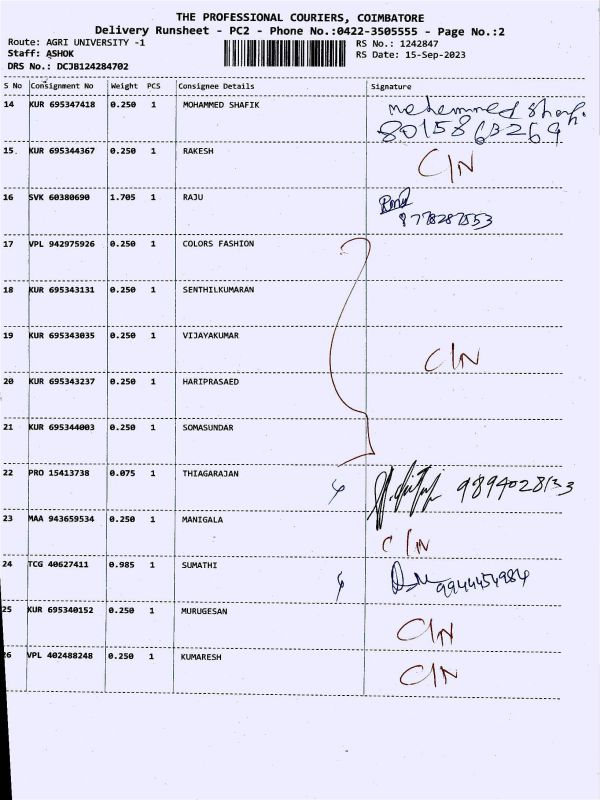 THE PROFESSIONAL COURIERS, COIMBATORE
Delivery Runsheet - PC2 - Phone No.:0422-3505555 - Page No.:2
Route: AGRI UNIVERSITY -1 RS No.: 1242847
Staff: ASHOK RS Date: 15-Sep-2023
DRS No.: DCJB124284702
S No Consignment No Weight PCS Consignee Details Signature
14 KUR 695347418 0.250 1 MOHAMMED SHAFIK mohemmed Shafi.
8015863269
15. KUR 695344367 0.250 1 RAKESH C/N
16 SVK 60380690 1.705 1 RAJU
8778287553
17 VPL 942975926 0.250 1 COLORS FASHION
18 KUR 695343131 0.250 1 SENTHILKUMARAN
19 KUR 695343035 0.250 1 VIJAYAKUMAR C/N
20 KUR 695343237 0.250 1 HARIPRASAED
21 KUR 695344003 0.250 1 SOMASUNDAR
22 PRO 15413738 0.075 1 THIAGARAJAN 9894028133
23 MAA 943659534 0.250 1 MANIGALA C/N
24 TCG 40627411 0.985 1 SUMATHI 9944454984
25 KUR 695340152 0.250 1 MURUGESAN C/N
26 VPL 402488248 0.250 1 KUMARESH C/N